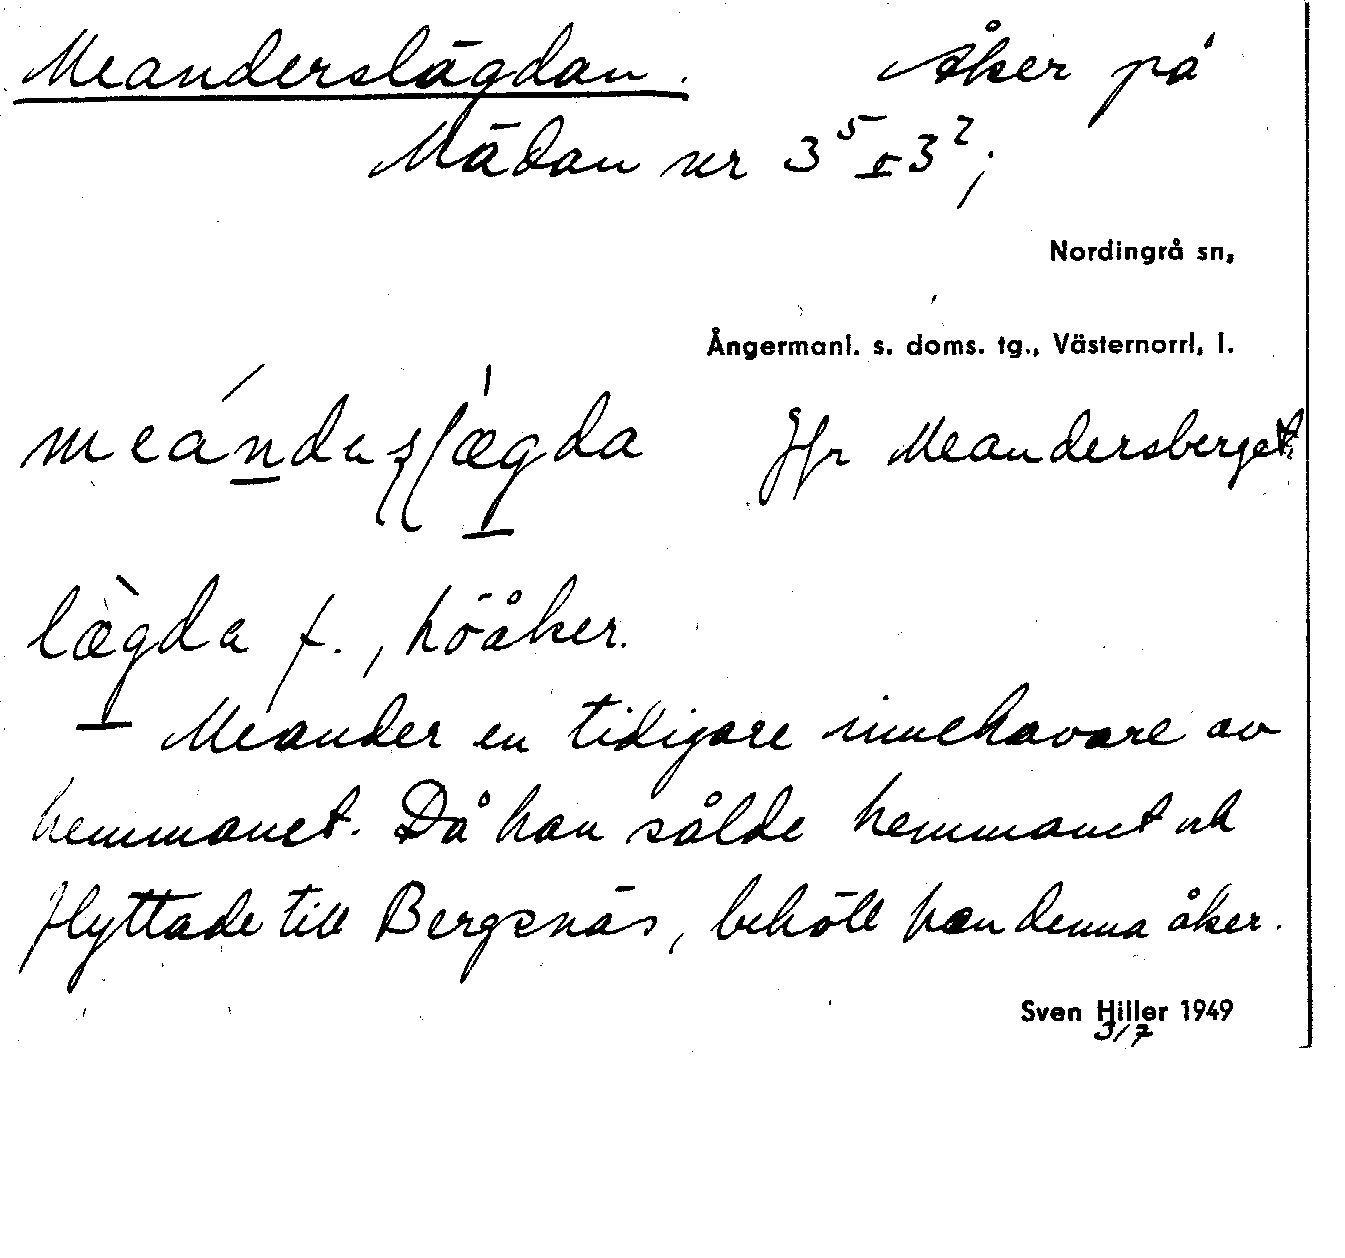 Meanderslägdan. Åker på
Mädan nr 3⁵ & 3²;
Nordingrå sn,
Ångermanl. s. doms. tg., Västernorrl. l.
lægda f., höåker.
Jfr Meandersberget.
Meander en tidigare innehavare av
hemmanet. Då han sålde hemmanet och
flyttade till Bergsnäs, behöll han denna åker.
Sven Hiller 1949
3/7